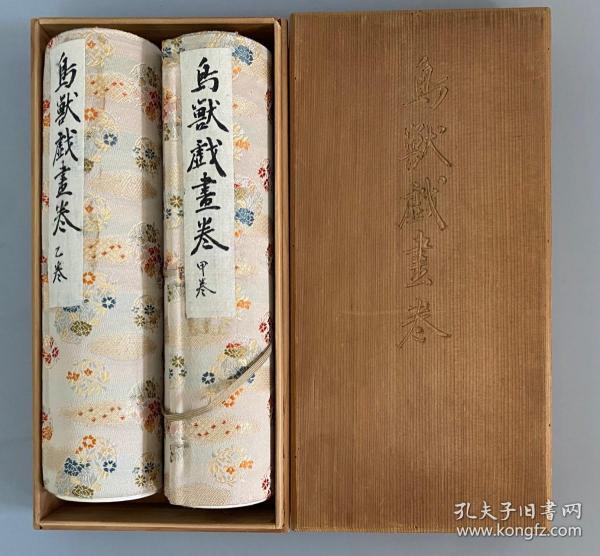 鳥獸戯畫巻 乙巻
鳥獸戯畫巻 甲巻
鳥獸戯畫巻
孔夫子旧書网
www.kongfz.com